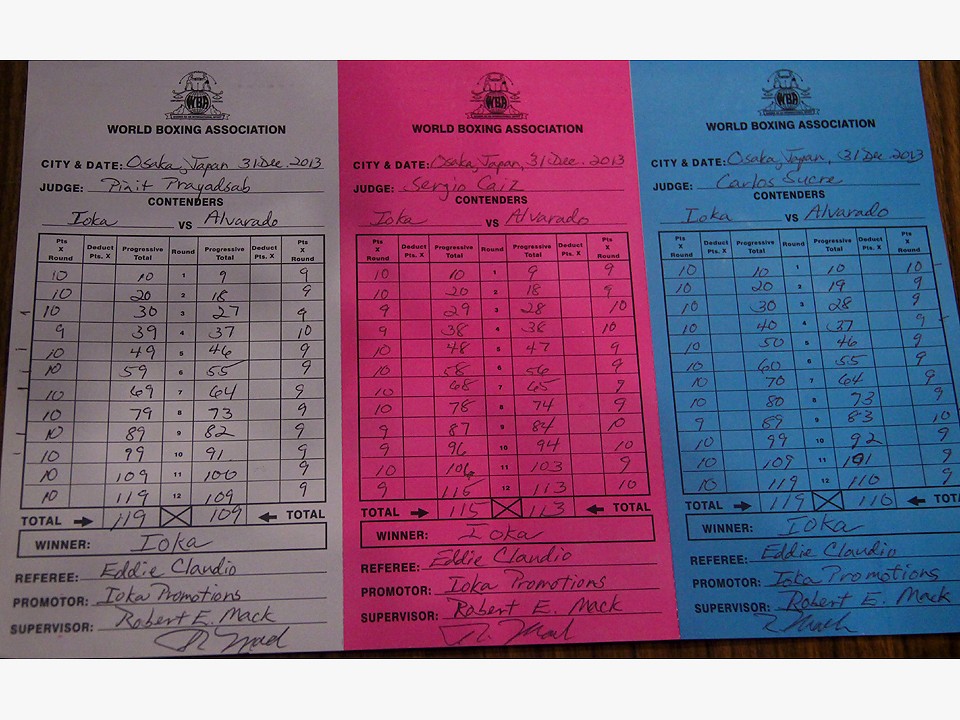 WBA
WORLD BOXING ASSOCIATION
CITY & DATE: Osaka, Japan 31 Dec. 2013
JUDGE: Pinit Prayadsab
CONTENDERS
Ioka VS Alvarado
Pts X Round Deduct Pts. X Progressive Total Round Progressive Total Deduct Pts. X Pts X Round
10 10 1 9 9
10 20 2 18 9
10 30 3 27 9
9 39 4 37 10
10 49 5 46 9
10 59 6 55 9
10 69 7 64 9
10 79 8 73 9
10 89 9 82 9
10 99 10 91 9
10 109 11 100 9
10 119 12 109 9
TOTAL 119 109 TOTAL
WINNER: Ioka
REFEREE: Eddie Claudio
PROMOTOR: Ioka Promotions
SUPERVISOR: Robert E. Mack
R. Mack
WBA
WORLD BOXING ASSOCIATION
CITY & DATE: Osaka, Japan, 31 Dec. 2013
JUDGE: Sergio Caiz
CONTENDERS
Ioka VS Alvarado
Pts X Round Deduct Pts. X Progressive Total Round Progressive Total Deduct Pts. X Pts X Round
10 10 1 9 9
10 20 2 18 9
9 29 3 28 10
9 38 4 38 10
10 48 5 47 9
10 58 6 56 9
10 68 7 65 9
10 78 8 74 9
9 87 9 84 10
9 96 10 94 10
10 106 11 103 9
9 115 12 113 10
TOTAL 115 113 TOTAL
WINNER: Ioka
REFEREE: Eddie Claudio
PROMOTOR: Ioka Promotions
SUPERVISOR: Robert E. Mack
R. Mack
WBA
WORLD BOXING ASSOCIATION
CITY & DATE: Osaka, Japan, 31 Dec. 2013
JUDGE: Carlos Sucre
CONTENDERS
Ioka VS Alvarado
Pts X Round Deduct Pts. X Progressive Total Round Progressive Total Deduct Pts. X Pts X Round
10 10 1 10 10
10 20 2 19 9
10 30 3 28 9
10 40 4 37 9
10 50 5 46 9
10 60 6 55 9
10 70 7 64 9
10 80 8 73 9
9 89 9 83 10
10 99 10 92 9
10 109 11 101 9
10 119 12 110 9
TOTAL 119 110 TOT
WINNER: Ioka
REFEREE: Eddie Claudio
PROMOTOR: Ioka Promotions
SUPERVISOR: Robert E. Mack
R. Mack